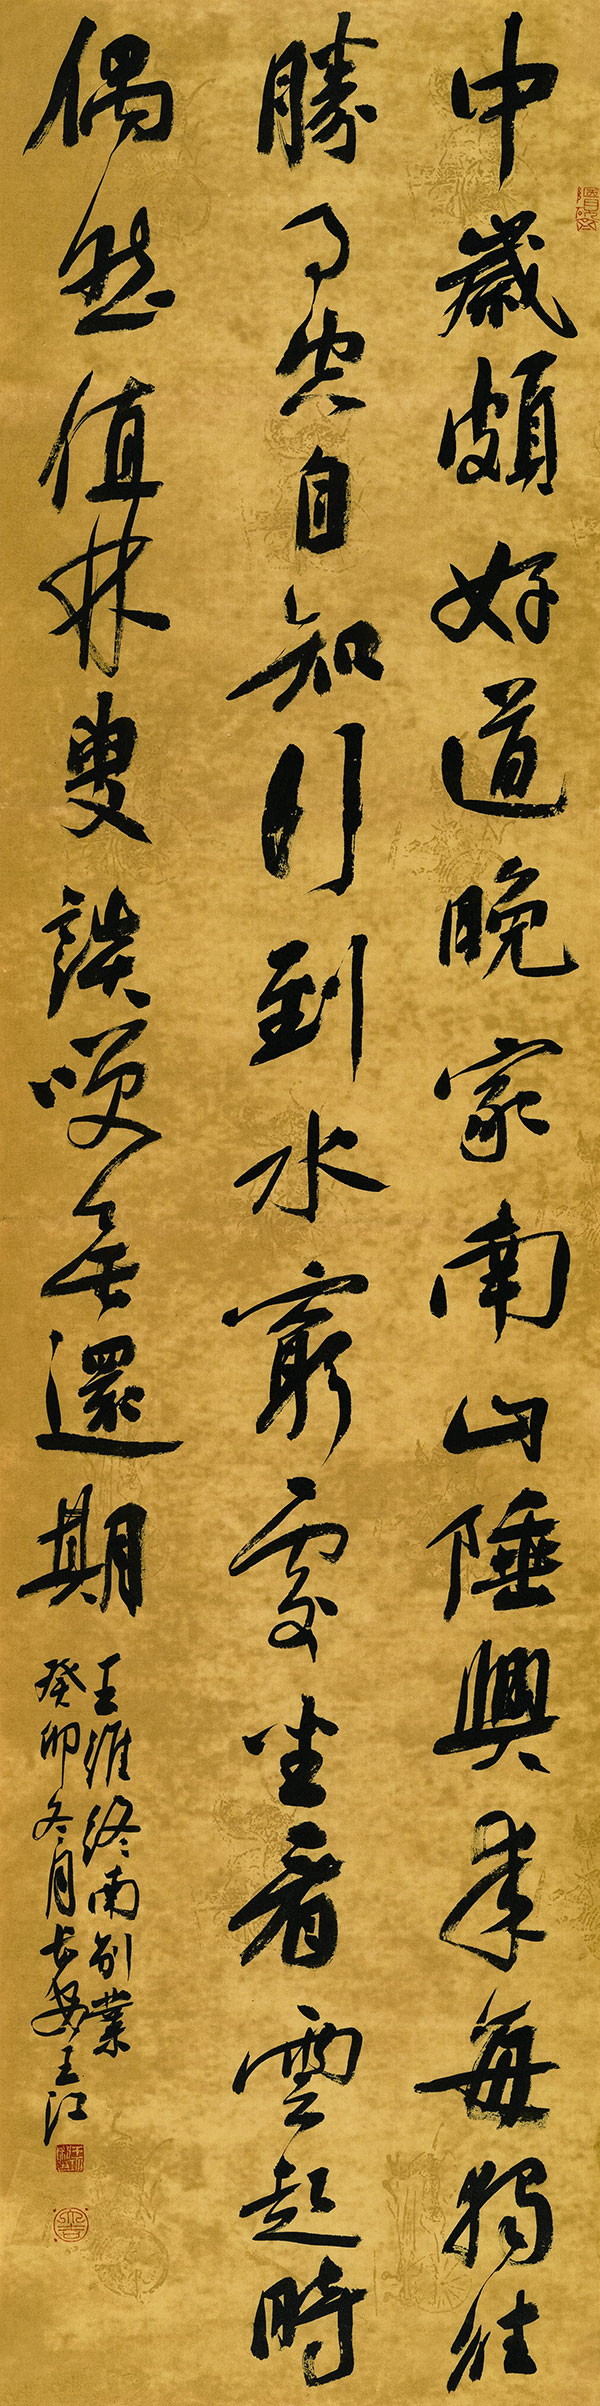 中歲頗好道晚家南山陲興來每獨往
勝事空自知行到水窮處坐看雲起時
偶然值林叟談笑無還期
王維終南別業
癸卯冬月長安王江